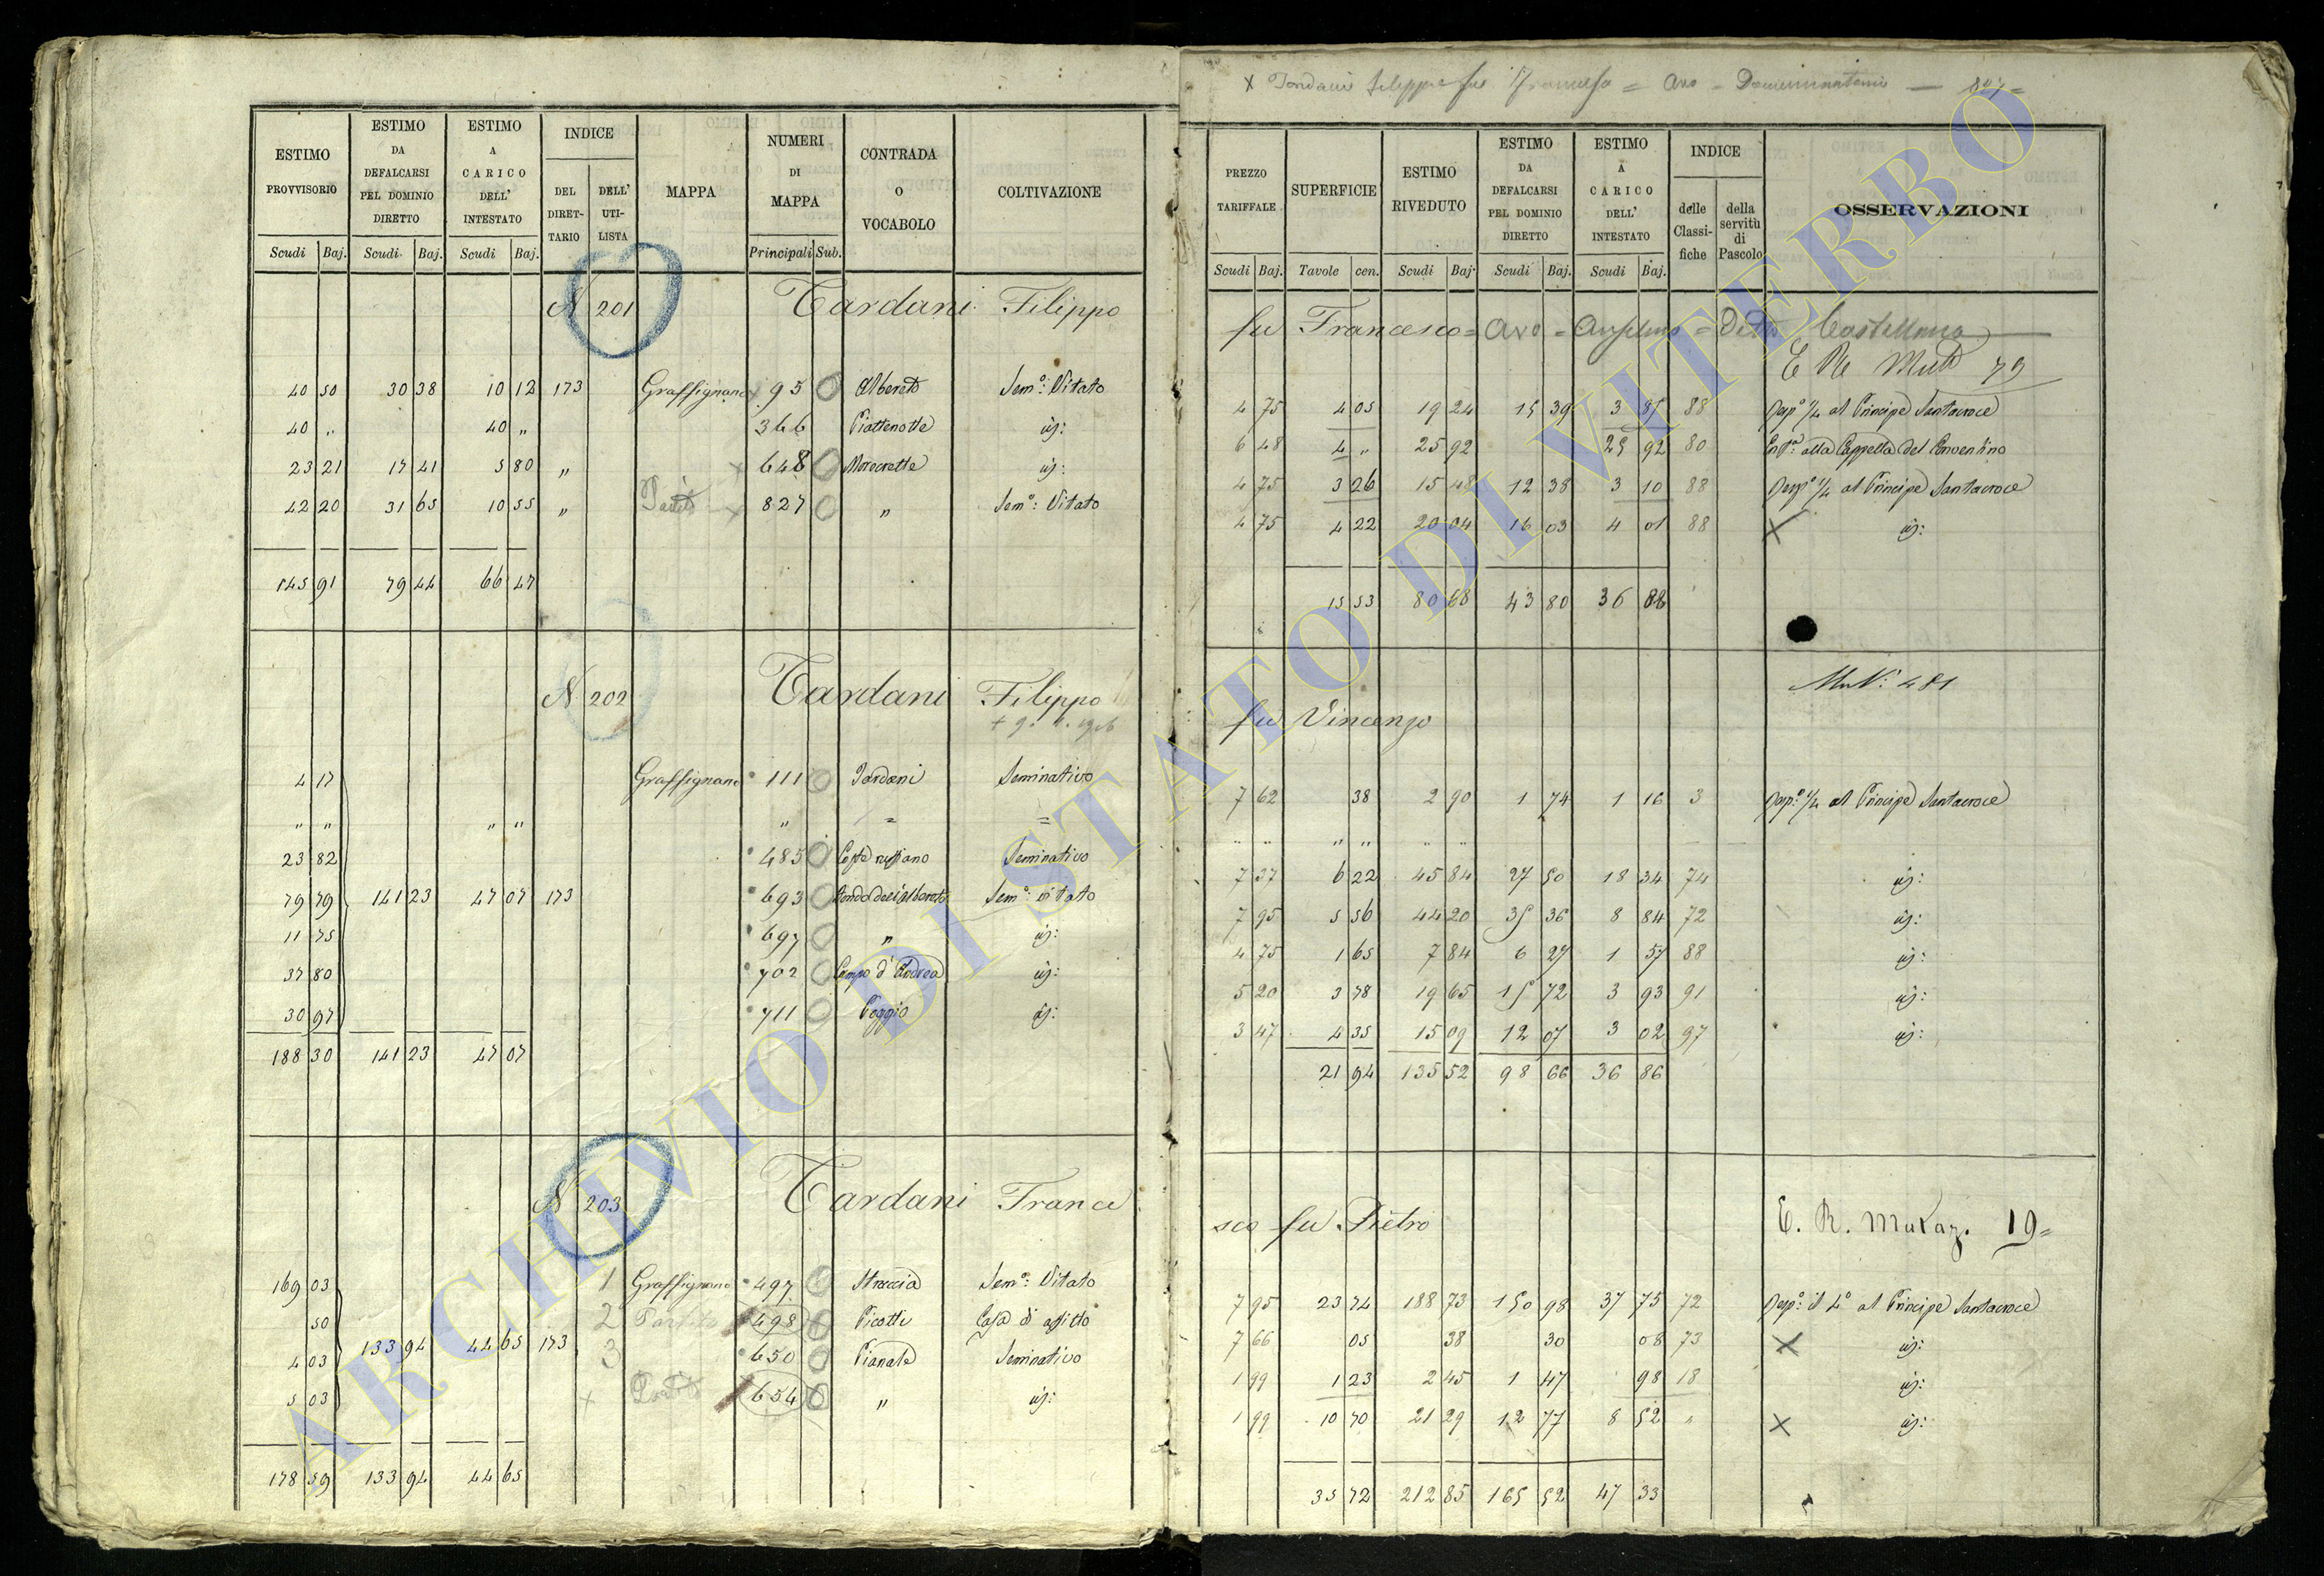 ESTIMO PROVVISORIO | ESTIMO DA DEFALCARSI PEL DOMINIO DIRETTO | ESTIMO A CARICO DELL' INTESTATO | INDICE | MAPPA | NUMERI DI MAPPA | CONTRADA O VOCABOLO | COLTIVAZIONE
DEL DIRETTARIO | DELL' UTILISTA
Scudi | Baj. | Scudi | Baj. | Scudi | Baj. | Principali | Sub.
N 201 Tardani Filippo
40 50 | 30 38 | 10 12 | 173 | Graffignano | 95 | Albereto | Sem.o: Vitato
40 " | 40 " | 366 | Piattenotte | id:
23 21 | 17 41 | 5 80 | " | 648 | id:
42 20 | 31 65 | 10 55 | " | 827 | " | Sem.o: Vitato
145 91 | 79 44 | 66 47
N 202 Tardani Filippo
4 17 | Graffignano | 111 | Tardani | Seminativo
" " | " " | " | = | =
23 82 | 485 | Seminativo
79 79 | 141 23 | 47 07 | 173 | 693 | Sem.o: vitato
11 75 | 697 | " | id:
37 80 | 702 | Campo d'Andrea | id:
30 97 | 711 | Poggio | id:
188 30 | 141 23 | 47 07
N 203 Tardani France
169 03 | 1 | Graffignano | 497 | Straccia | Sem.o: Vitato
50 | 2 | 498 | Picotte | Casa di affitto
4 03 | 133 94 | 44 65 | 173 | 3 | 650 | Pianale | Seminativo
5 03 | 654 | " | id:
178 59 | 133 94 | 44 65
x Tardani Filippo fu Francesco = avo =
PREZZO TARIFFALE | SUPERFICIE | ESTIMO RIVEDUTO | ESTIMO DA DEFALCARSI PEL DOMINIO DIRETTO | ESTIMO A CARICO DELL' INTESTATO | INDICE | OSSERVAZIONI
delle Classifiche | della servitù di Pascolo
Scudi | Baj. | Tavole | cen. | Scudi | Baj. | Scudi | Baj. | Scudi | Baj.
fu Francesco = avo = Anselmo = Detto Castellano
E Re Mut 79
4 75 | 4 05 | 19 24 | 15 39 | 3 85 | 88 | Risp.o 1/4 al Principe Santacroce
6 48 | 4 " | 25 92 | 25 92 | 80 | alla Cappella del Conventino
4 75 | 3 26 | 15 48 | 12 38 | 3 10 | 88 | Risp.o 1/4 al Principe Santacroce
4 75 | 4 22 | 20 04 | 16 03 | 4 01 | 88 | x | id:
15 53 | 80 68 | 43 80 | 36 88
fu Vincenzo
7 62 | 38 | 2 90 | 1 74 | 1 16 | 3 | Risp.o 1/4 al Principe Santacroce
" " | " " | " "
7 37 | 6 22 | 45 84 | 27 50 | 18 34 | 74 | id:
7 95 | 5 56 | 44 20 | 35 36 | 8 84 | 72 | id:
4 75 | 1 65 | 7 84 | 6 27 | 1 57 | 88 | id:
5 20 | 3 78 | 19 65 | 15 72 | 3 93 | 91 | id:
3 47 | 4 35 | 15 09 | 12 07 | 3 02 | 97 | id:
21 94 | 135 52 | 98 66 | 36 86
sco fu Pietro
E. R. Mutaz. 19=
7 95 | 23 74 | 188 73 | 150 98 | 37 75 | 72 | Risp.o: il 4.o al Principe Santacroce
7 66 | 05 | 38 | 30 | 08 | 73 | x | id:
1 99 | 1 23 | 2 45 | 1 47 | 98 | 18 | id:
1 99 | 10 70 | 21 29 | 12 77 | 8 52 | " | x | id:
35 72 | 212 85 | 165 52 | 47 33
ARCHIVIO DI STATO DI VITERBO